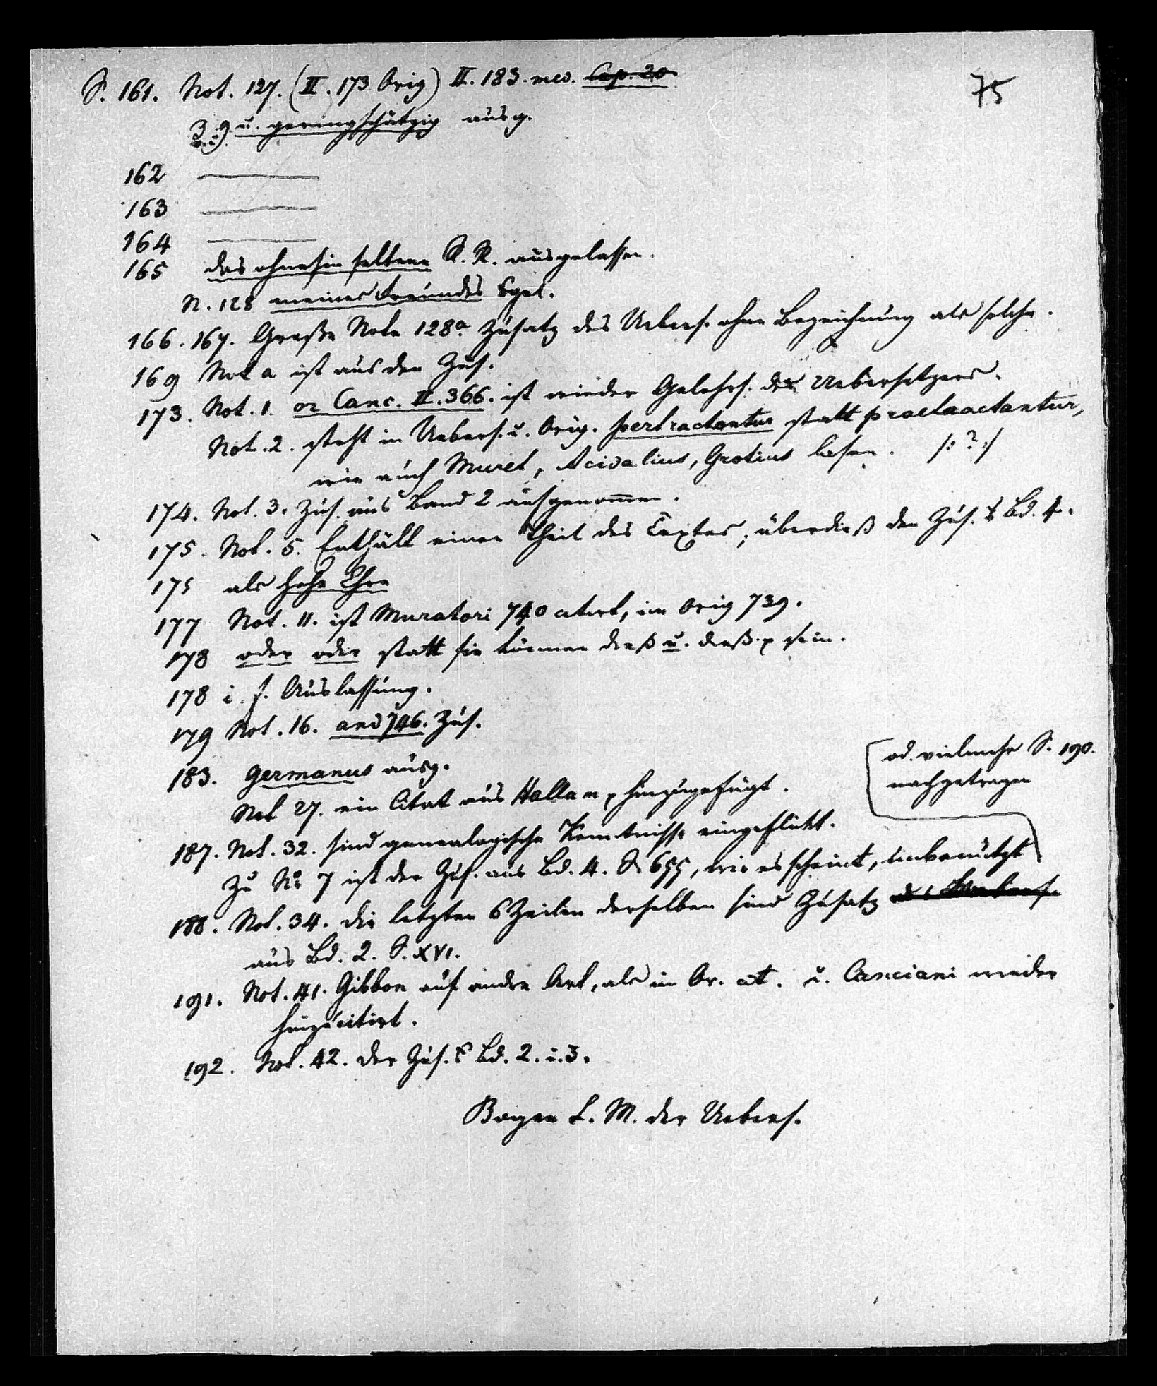 75
S. 161. Not. 127. (II. 173 Orig) II. 183. med. Cap. 20
3. 9 u. geringschätzig ausg.
162
163
164
165 das ohnehin seltene S. R. ausgelassen.
N. 128 meines Freundes Egel.
166. 167. Große Note 128a Zusatz des Uebers. ohne Bezeichnung als solche.
169 Not a ist aus den Zus.
173. Not. 1. or Canc. II. 366. ist wieder Gelehrs. des Uebersetzers.
Not. 2. steht in Uebers. u. Orig. pertractantur statt praetractantur,
wie auch Muret, Acidalius, Grotius lasen. /: ? :/
174. Not. 3. Zus. aus Band 2 aufgenommen.
175. Not. 5. Enthält einen Theil des Textes; überdieß den Zus. Bd. 4.
175 als hohe Ehre
177 Not. 11. ist Muratori 740 citirt, im Orig 739.
178 oder oder statt sie können dieß u. dieß sein.
178 i. f. Auslassung.
179 Not. 16. and 746. Zus.
183. Germanus ausg.
Not 27. ein Citat aus Hallam hinzugefügt.
od. vielmehr S. 190.
nachgetragen
187. Not. 32. sind genealogische Kenntnisse eingeflickt.
Zu No 7 ist der Zus. aus Bd. 4. S. 655, wie es scheint, unbenützt
188. Not. 34. die letzten 6 Zeilen derselben sind Zusatz des Uebers.
aus Bd. 2. S. XVI.
191. Not. 41. Gibbon auf andre Art, als im Or. cit. u. Canciani wieder
hinzucitirt.
192. Not. 42. der Zus. Bd. 2. u. 3.
Bogen L. M. der Uebers.